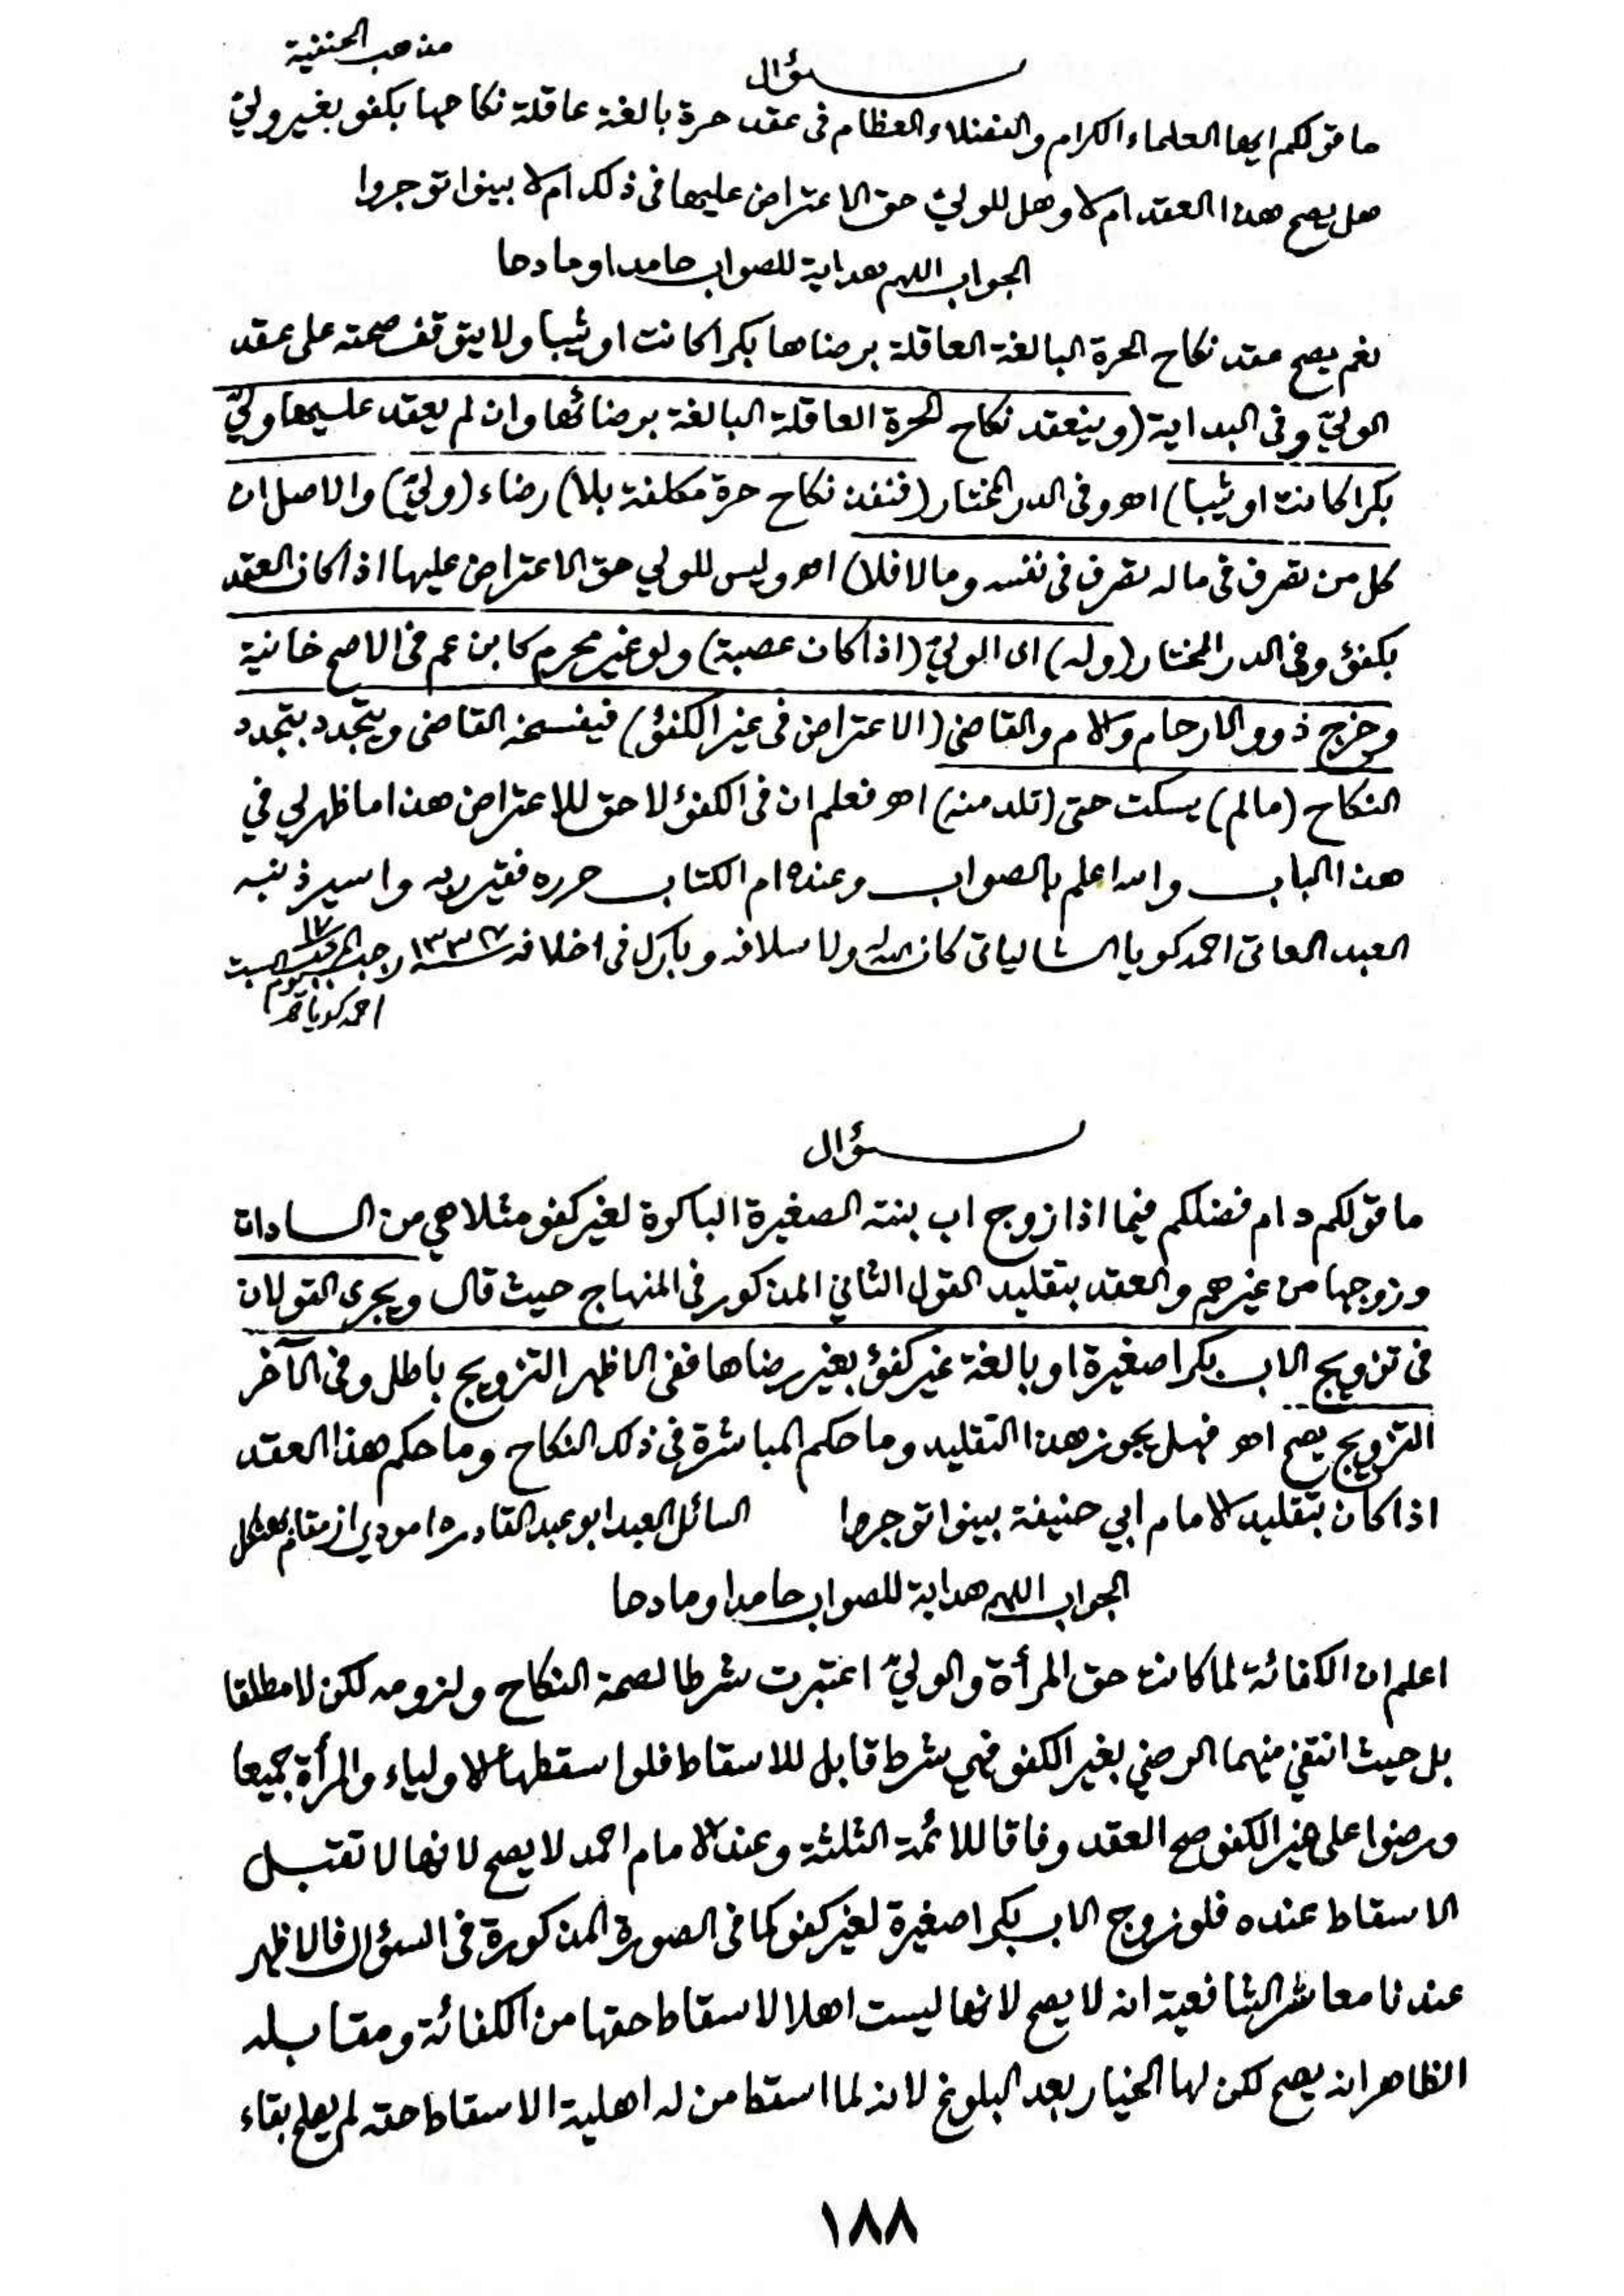 مذهب الحنفية
سؤال
ما قولكم ايها العلماء الكرام والفضلاء العظام فى عقد حرة بالغة عاقلة نكاحها بكفو بغير ولىّ
هل يصح هذا العقد ام لا وهل للولىّ حق الاعتراض عليها فى ذلك ام لا بينوا توجروا
الجواب اللهم هداية للصواب حامدا ومادحا
نعم يصح عقد نكاح الحرة البالغة العاقلة برضاها بكرا كانت او ثيبا ولا يتوقف صحته على عقد
الولىّ وفى البداية (وينعقد نكاح الحرة العاقلة البالغة برضائها وان لم يعقد عليها ولىّ
بكرا كانت او ثيبا) اهـ وفى الدر المختار (فنفذ نكاح حرة مكلفة بلا) رضاء (ولىّ) والاصل ان
كل من تصرف فى ماله تصرف فى نفسه وما لا فلا) اهـ وليس للولي حق الاعتراض عليها اذا كان العقد
بكفؤ وفى الدر المختار (وله) اى الولىّ (اذا كان عصبة) ولو غير محرم كابن عم فى الاصح خانية
وخرج ذوو الارحام والام والقاضى (الاعتراض فى غير الكفؤ) فيفسخه القاضى ويتجدد بتجدد
النكاح (مالم) يسكت حتى (تلد منه) اهـ فعلم ان فى الكفؤ لا حق للاعتراض هذا ما ظهر لي في
هذا الباب والله اعلم بالصواب وعنده ام الكتاب حرره فقير ربه واسير ذنبه
العبد العاتى احمد كويا الشالياتى كان الله له ولاسلافه وبارك فى اخلافه ١٧ رجب يوم السبت
احمد كويا
سؤال
ما قولكم دام فضلكم فيما اذا زوج اب بنته الصغيرة الباكرة لغير كفو مثلا هي من السادات
وزوجها من غيرهم والعقد بتقليد القول الثاني المذكور فى المنهاج حيث قال ويجرى القولان
فى تزويج الاب بكرا صغيرة او بالغة غير كفؤ بغير رضاها ففى الاظهر التزويج باطل وفى الآخر
التزويج يصح اهـ فهل يجوز هذا التقليد وما حكم المباشرة فى ذلك النكاح وما حكم هذا العقد
اذا كان بتقليد الامام ابي حنيفة بينوا توجروا السائل العبد ابو عبد القادر از مقام
الجواب اللهم هداية للصواب حامدا ومادحا
اعلم ان الكفائة لما كانت حق المرأة والولىّ اعتبرت شرطا لصحة النكاح ولزومه لكن لا مطلقا
بل حيث انتفى منهما الرضى بغير الكفو فهي شرط قابل للاسقاط فلو اسقطها الاولياء والمرأة جميعا
ورضوا على غير الكفو صح العقد وفاقا للائمة الثلثة وعند الامام احمد لا يصح لانها لا تقبل
الاسقاط عنده فلو زوج الاب بكرا صغيرة لغير كفو كما فى الصورة المذكورة فى السؤال فالاظهر
عندنا معاشر الشافعية انه لا يصح لانها ليست اهلا لاسقاط حقها من الكفائة ومقابله
الظاهر انه يصح لكن لها الخيار بعد البلوغ لانه لما اسقط من له اهلية الاسقاط حقه لم يعلم بقاء
١٨٨